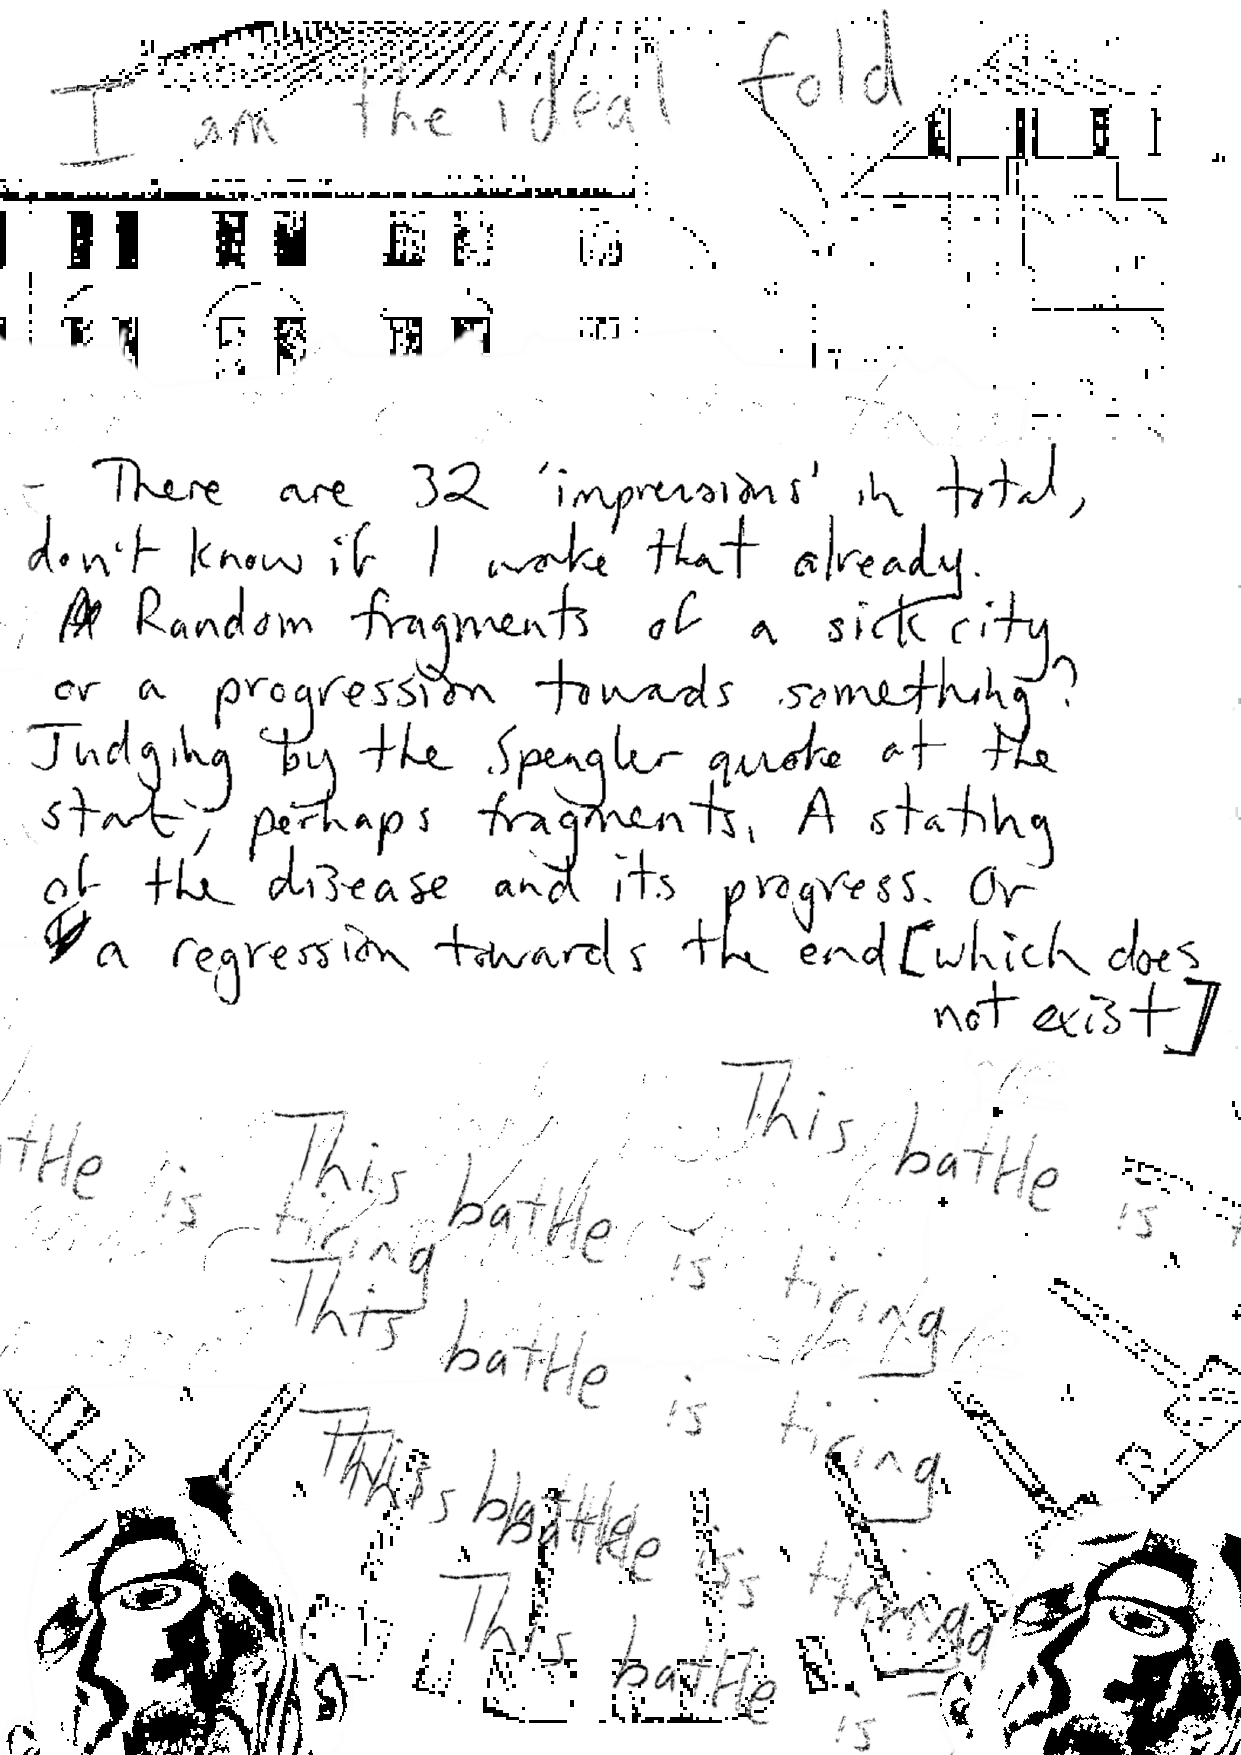 I am the ideal fold
- There are 32 'impressions' in total,
don't know if I wrote that already.
Random fragments of a sick city
or a progression towards something?
Judging by the Spengler quote at the
start, perhaps fragments. A stating
of the disease and its progress. Or
a regression towards the end [which does
not exist]
This battle is
ttle is tiring
This battle is tiring
This battle is tiring
This battle is tiring
This battle is